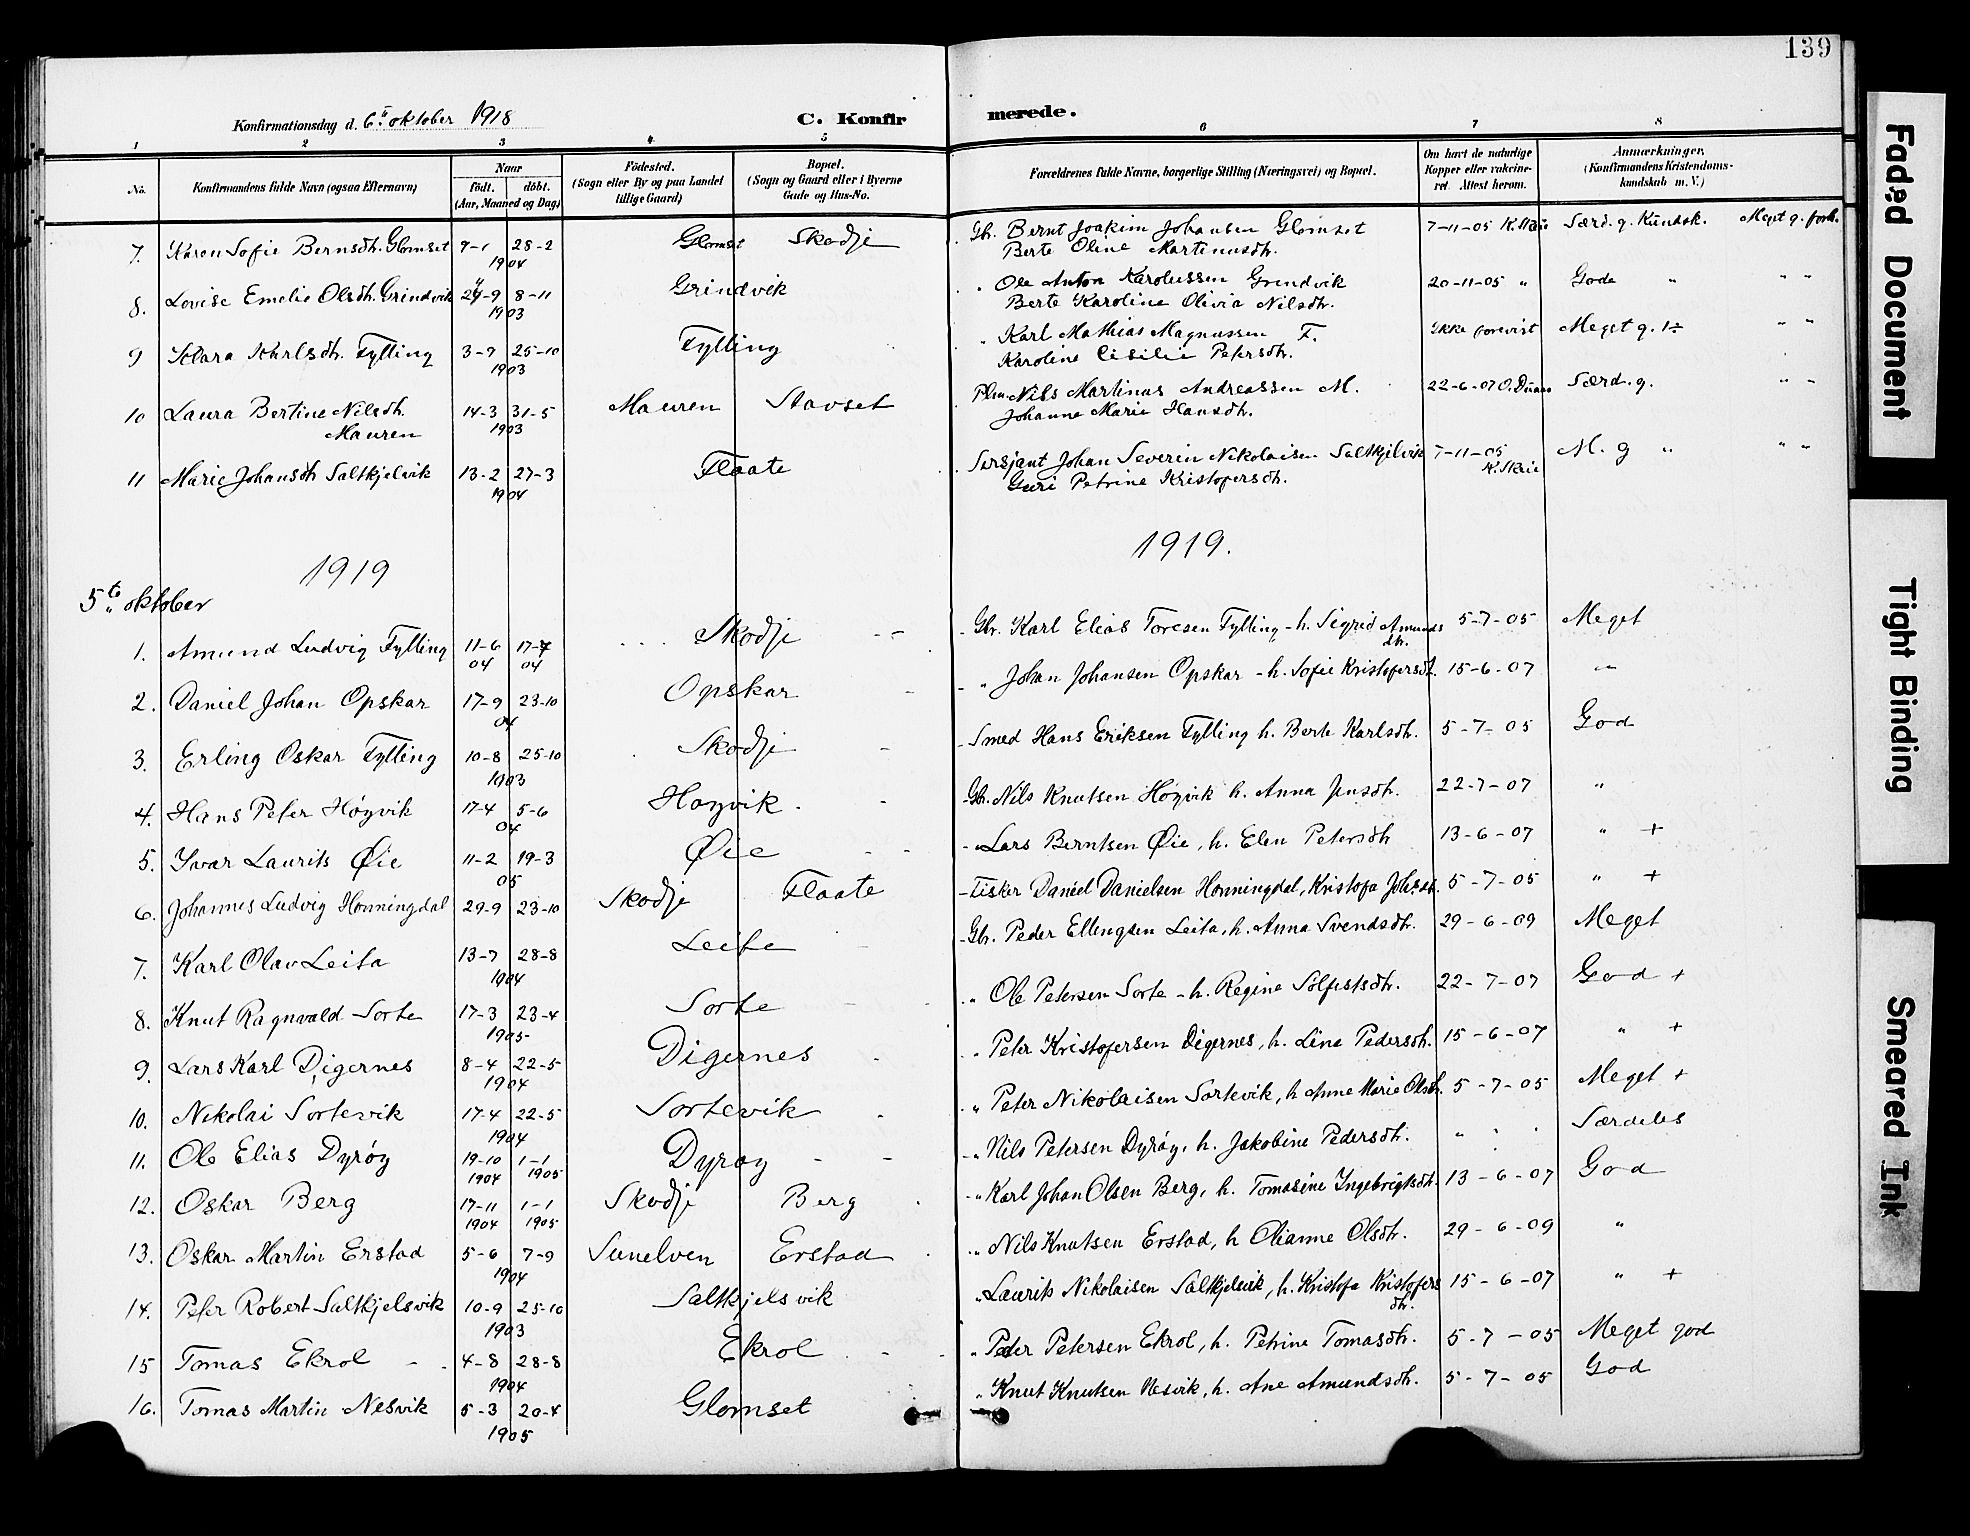 139
Konfirmationsdag d. 6te oktober 1918
C. Konfirmerede.
1 2 3 4 5 6 7 8
No.
Konfirmandens fulde Navn (ogsaa Efternavn)
Naar
født. døbt.
(Aar, Maaned og Dag)
Fødested.
(Sogn eller By og paa Landet tillige Gaard)
Bopæl.
(Sogn og Gaard eller i Byerne Gade og Hus-No.
Forældrenes fulde Navne, borgerlige Stilling (Næringsvei) og Bopæl.
Om havt de naturlige Kopper eller vakcineret. Attest herom.
Anmærkninger,
(Konfirmandens Kristendomskundskab m. V.)
7. Karen Sofie Bernsdtr. Glomset 9-1 28-2 1904 Glomset Skodje Gbr. Bernt Joakim Johansen Glomset 7-11-05 K. Skrie Særd. g. Kundsk. Meget g. forh.
Berte Oline Martinusdtr.
8. Lovise Emelie Olsdtr. Grindvik 24-9 8-11 1903 Grindvik " Ole Anton Karolussen Grindvik 20-11-05 " Gode " " "
Berte Karoline Olivia Nilsdtr.
9 Klara Karlsdtr. Fylling 3-9 25-10 1903 Fylling " Karl Mathias Magnussen F. Ikke forevist Meget g. " "
Karoline Cisilie Petersdtr.
10 Laura Bertine Nilsdtr. Mauren 14-3 31-5 1903 Mauren Stavset Nils Martinus Andreassen M. 22-6-07 Særd. g. " "
Johanne Marie Hansdtr.
11 Marie Johansdtr Saltkjelvik 13-2 27-3 1904 Flaate Sersjant Johan Severin Nikolaisen Saltkjelvik 7-11-05 K. Skrie M. g " " "
Guri Petrine Kristofersdtr.
1919
1919.
5te oktober
1. Amund Ludvig Fylling 11-6 04 17-7 04 Skodje Gbr. Karl Elias Toresen Fylling - h. Sigrid Amundsdtr. 5-7-05 Meget
2. Daniel Johan Opskar 17-9 23-10 04 Opskar " Johan Johansen Opskar - h. Sofie Kristofersdt. 15-6-07 "
3. Erling Oskar Fylling 10-8 25-10 1903 Skodje - Smed Hans Eriksen Fylling h. Berte Karlsdtr. 5-7-05 God
4. Hans Peter Høgvik 17-4 5-6 04 Høgvik Gbr. Nils Knutsen Høgvik h. Anna Jensdtr. 22-7-07 "
5. Ivar Laurits Øie 11-2 19-3 05 Øie " Lars Berntsen Øie, h. Elen Petersdtr 13-6-07 " +
6. Johannes Ludvig Honningdal 29-9 23-10 Skodje Flaate - Fisker Daniel Danielsen Honningdal, Kristofa Johsdt. 5-7-05 " +
7. Karl Olav Leita 13-7 28-8 1904 Leite - Gbr. Peder Ellengsen Leita, h. Anna Svendsdtr. 29-6-09 Meget
8. Knut Ragnvald Sorte 17-3 23-4 1905 Sorte " Ole Petersen Sorte - h. Regine Solfestsdtr. 22-7-07 God +
9. Lars Karl Digernes 8-4 22-5 1904 Digernes " Peter Kristofersen Digernes, h. Line Pedersdtr. 15-6-07 " +
10. Nikolai Sortevik 17-4 22-5 1904 Sortevik " Peter Nikolaisen Sortevik, h Anne Marie Olsdtr. 5-7-05 Meget +
11. Ole Elias Dyrøy 19-10 1904 1-1 1905 Dyrøy - - " Nils Petersen Dyrøy, h. Jakobine Pedersdtr. " " " Særdeles
12. Oskar Berg 17-11 1904 1-1 1905 Skodje Berg " Karl Johan Olsen Berg, h. Tomasine Ingebrigtsdtr. 13-6-07 God
13. Oskar Martin Erstad 5-6 7-9 1904 Sunelven Erstad " Nils Knutsen Erstad, h Olianne Olsdtr. 29-6-09 "
14. Peter Robert Saltkjelsvik 10-9 25-10 1903 Saltkjelsvik " Laurits Nikolaisen Saltkjelsvik, h. Kristofa Kristofersdtr. 15-6-07 " +
15 Tomas Ekrol 4-8 28-8 1904 Ekrol " Peder Petersen Ekrol, h. Petrine Tomasdtr. 5-7-05 Meget god
16. Tomas Martin Nesvik 5-3 20-4 1905 Glomset " Knut Knutsen Nesvik, h. Ane Amundsdtr. 5-7-05 God
Faded Document
Tight Binding
Smeared Ink